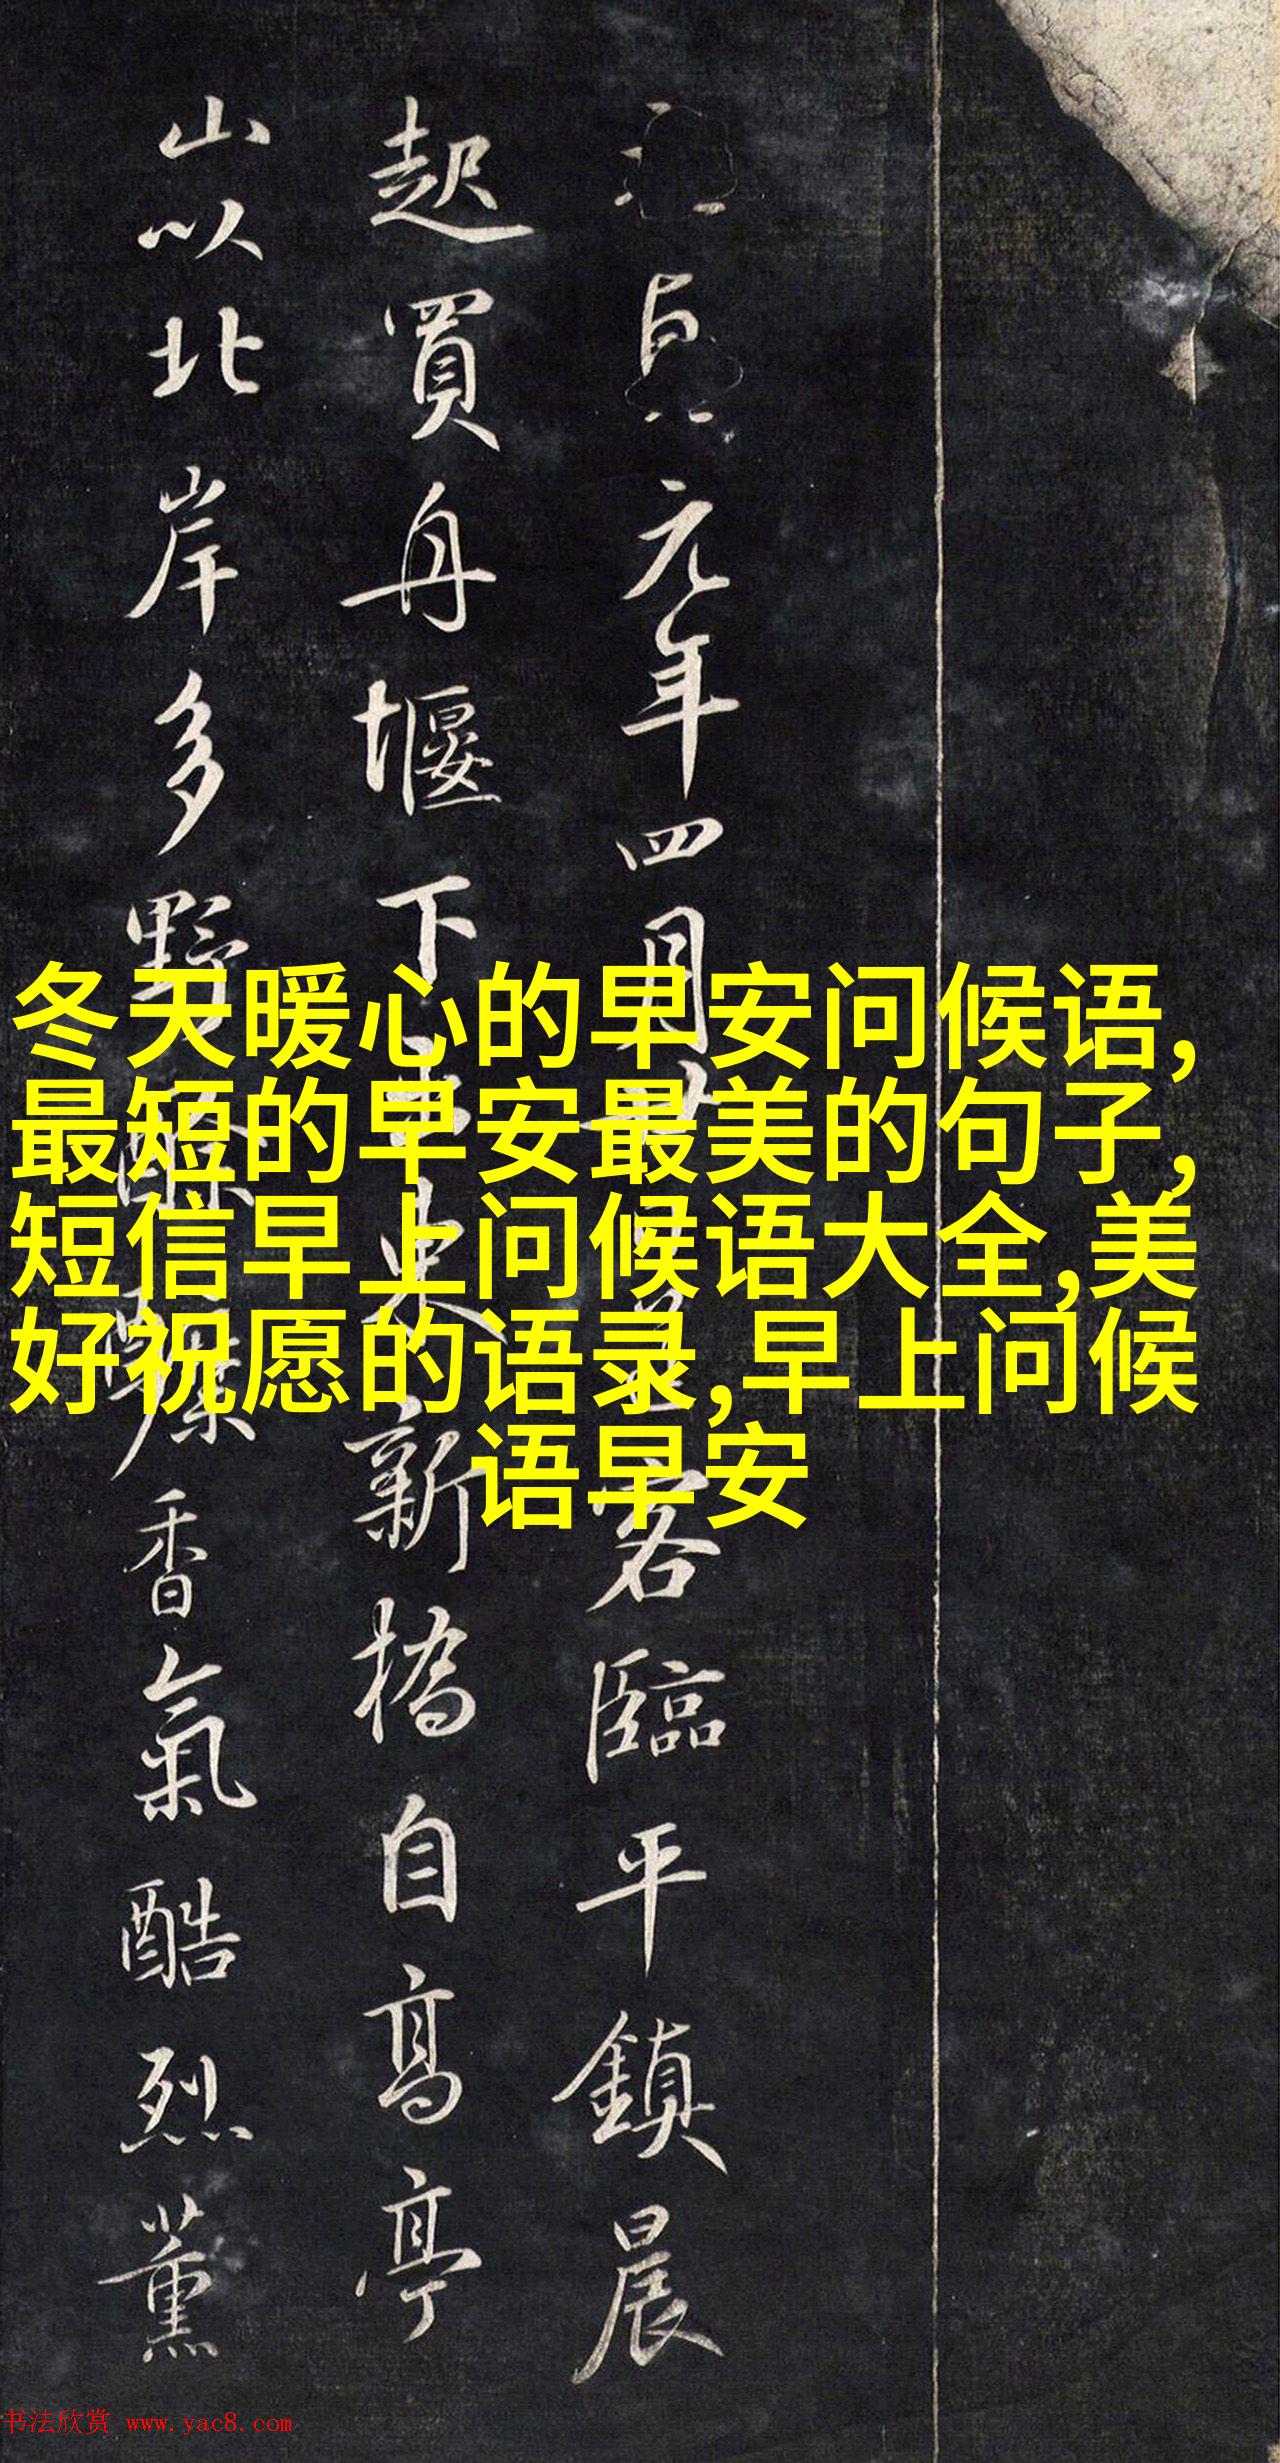 元年四月廿 客臨平鎮晨
起買舟堰下 新橋自高亭
山以北岸多野酴醿香氣酷烈薰
冬天暖心的早安问候语,
最短的早安最美的句子,
短信早上问候语大全,美
好祝愿的语录,早上问候
语早安
书法欣赏 www.yac8.com